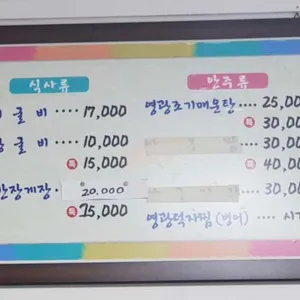 식사류
굴비 .... 17,000
굴비 .... 10,000
특 15,000
간장게장 . 20.000
특 25,000
안주류
영광조기매운탕 .... 25,00
특 30,00
30,00
특 40,00
30,00
영광덕자찜 (병어) .... 시